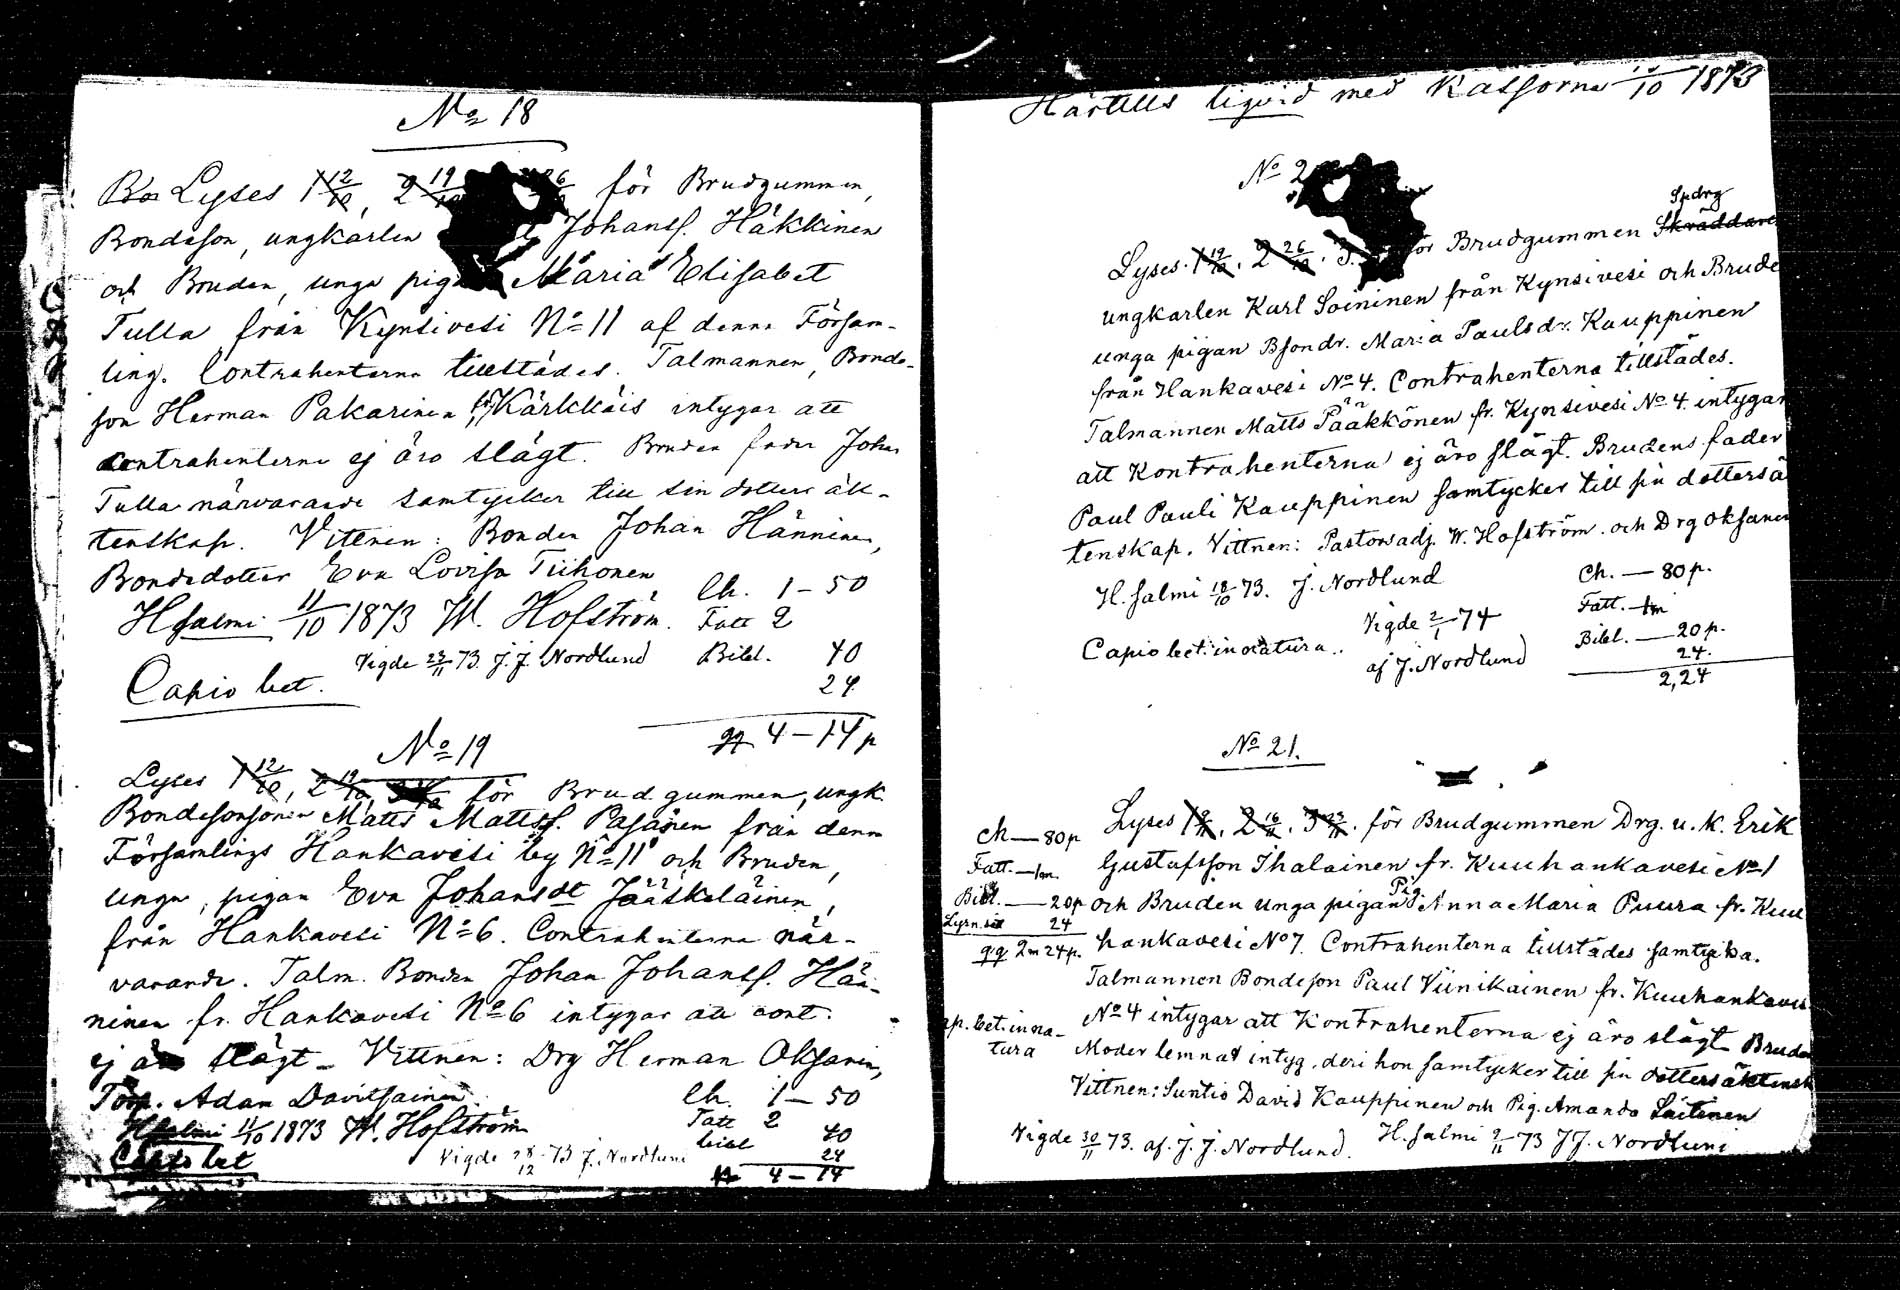 No 18
Lyses 1 12/10, 2 19/10 26 för Brudgummen,
Bondeson, ungkarlen Johanss. Häkkinen
och Bruden, unga pigan Maria Elisabet
Tulla från Kynsivesi No 11 af denna Försam-
ling. Contrahenterna tillstädes. Talmannen, Bonde-
son Herman Pakarinen fr. Kärkkäis intygar att
contrahenterna ej äro slägt. Bruden fader Johan
Tulla närvarande samtycker till sin dotters äk-
tenskap. Vittnen: Bonden Johan Hänninen,
Bondedotter Eva Lovisa Tiihonen
Ch. 1 - 50
H.salmi 11/10 1873 W. Hofström. Fatt 2
Vigde 23/11 73. J. J. Nordlund Bibl. 40
Capio bet. 24
4 - 14 p
No 19
Lyses 1 12/10, 2 19/10, för Brudgummen, ungk.
Bondesonsonen Matts Mattss. Pasanen från denna
Församlings Hankavesi by No 11 och Bruden,
unga, pigan Eva Johansdt Jääskeläinen,
från Hankavesi No 6. Contrahenterna när-
varande. Talm. Bonden Johan Johanss. Hän-
ninen fr. Hankavesi No 6 intygar att cont.
ej äro slägt - Vittnen: Drg Herman Oksanen,
Torp. Adam Davitsainen. Ch. 1 - 50
H.salmi 11/10 1873 W. Hofström Fatt 2
bibl 40
Capio bet Vigde 28/12 - 73 J. Nordlund 24
4 - 14
Härtills liqvid med Kassorna /10 1873
No 2
Lyses 1 19/10, 2 26/10, 3. för Brudgummen Skräddare
Spdrg
ungkarlen Karl Soininen från Kynsivesi och Brude
unga pigan Bsondr. Maria Paulsdr. Kauppinen
från Hankavesi No 4. Contrahenterna tillstädes.
Talmannen Matts Pääkkönen fr. Kynsivesi No 4. intygar
att Kontrahenterna ej äro slägt. Brudens fader
Paul Pauli Kauppinen samtycker till sin dottersä
tenskap. Vittnen: Pastorsadj. W. Hofström. och Drg Oksanen
H.salmi 18/10 73. J. Nordlund Ch. — 80 p.
Vigde 2/1 - 74 Fatt. — 1m
Capio bet. in natura. Bibl. — 20 p.
af J. Nordlund 24.
2,24
No 21.
Lyses 1 9/11, 2 16/11, 3 23/11. för Brudgummen Drg. u. k. Erik
Gustafsson Ihalainen fr. Kuuhankavesi No 1
och Bruden unga pigan Pig. Anna Maria Puura fr. Kuu
hankavesi No 7. Contrahenterna tillstädes samtycka.
Talmannen Bondeson Paul Viinikainen fr. Kuuhankaves
No 4 intygar att Kontrahenterna ej äro slägt Bruden
Moder lemnat intyg, deri hon samtycker till sin dottersäktensk
Vittnen: Suntio David Kauppinen och Pig. Amanda Laitinen
Vigde 30/11 73. af. J. J. Nordlund. H.salmi 9/11 - 73 J J. Nordlund
Ch — 80 p
Fatt. — 1m.
Bibl. — 20 p
24
2m 24 p.
ap. bet. in na-
tura